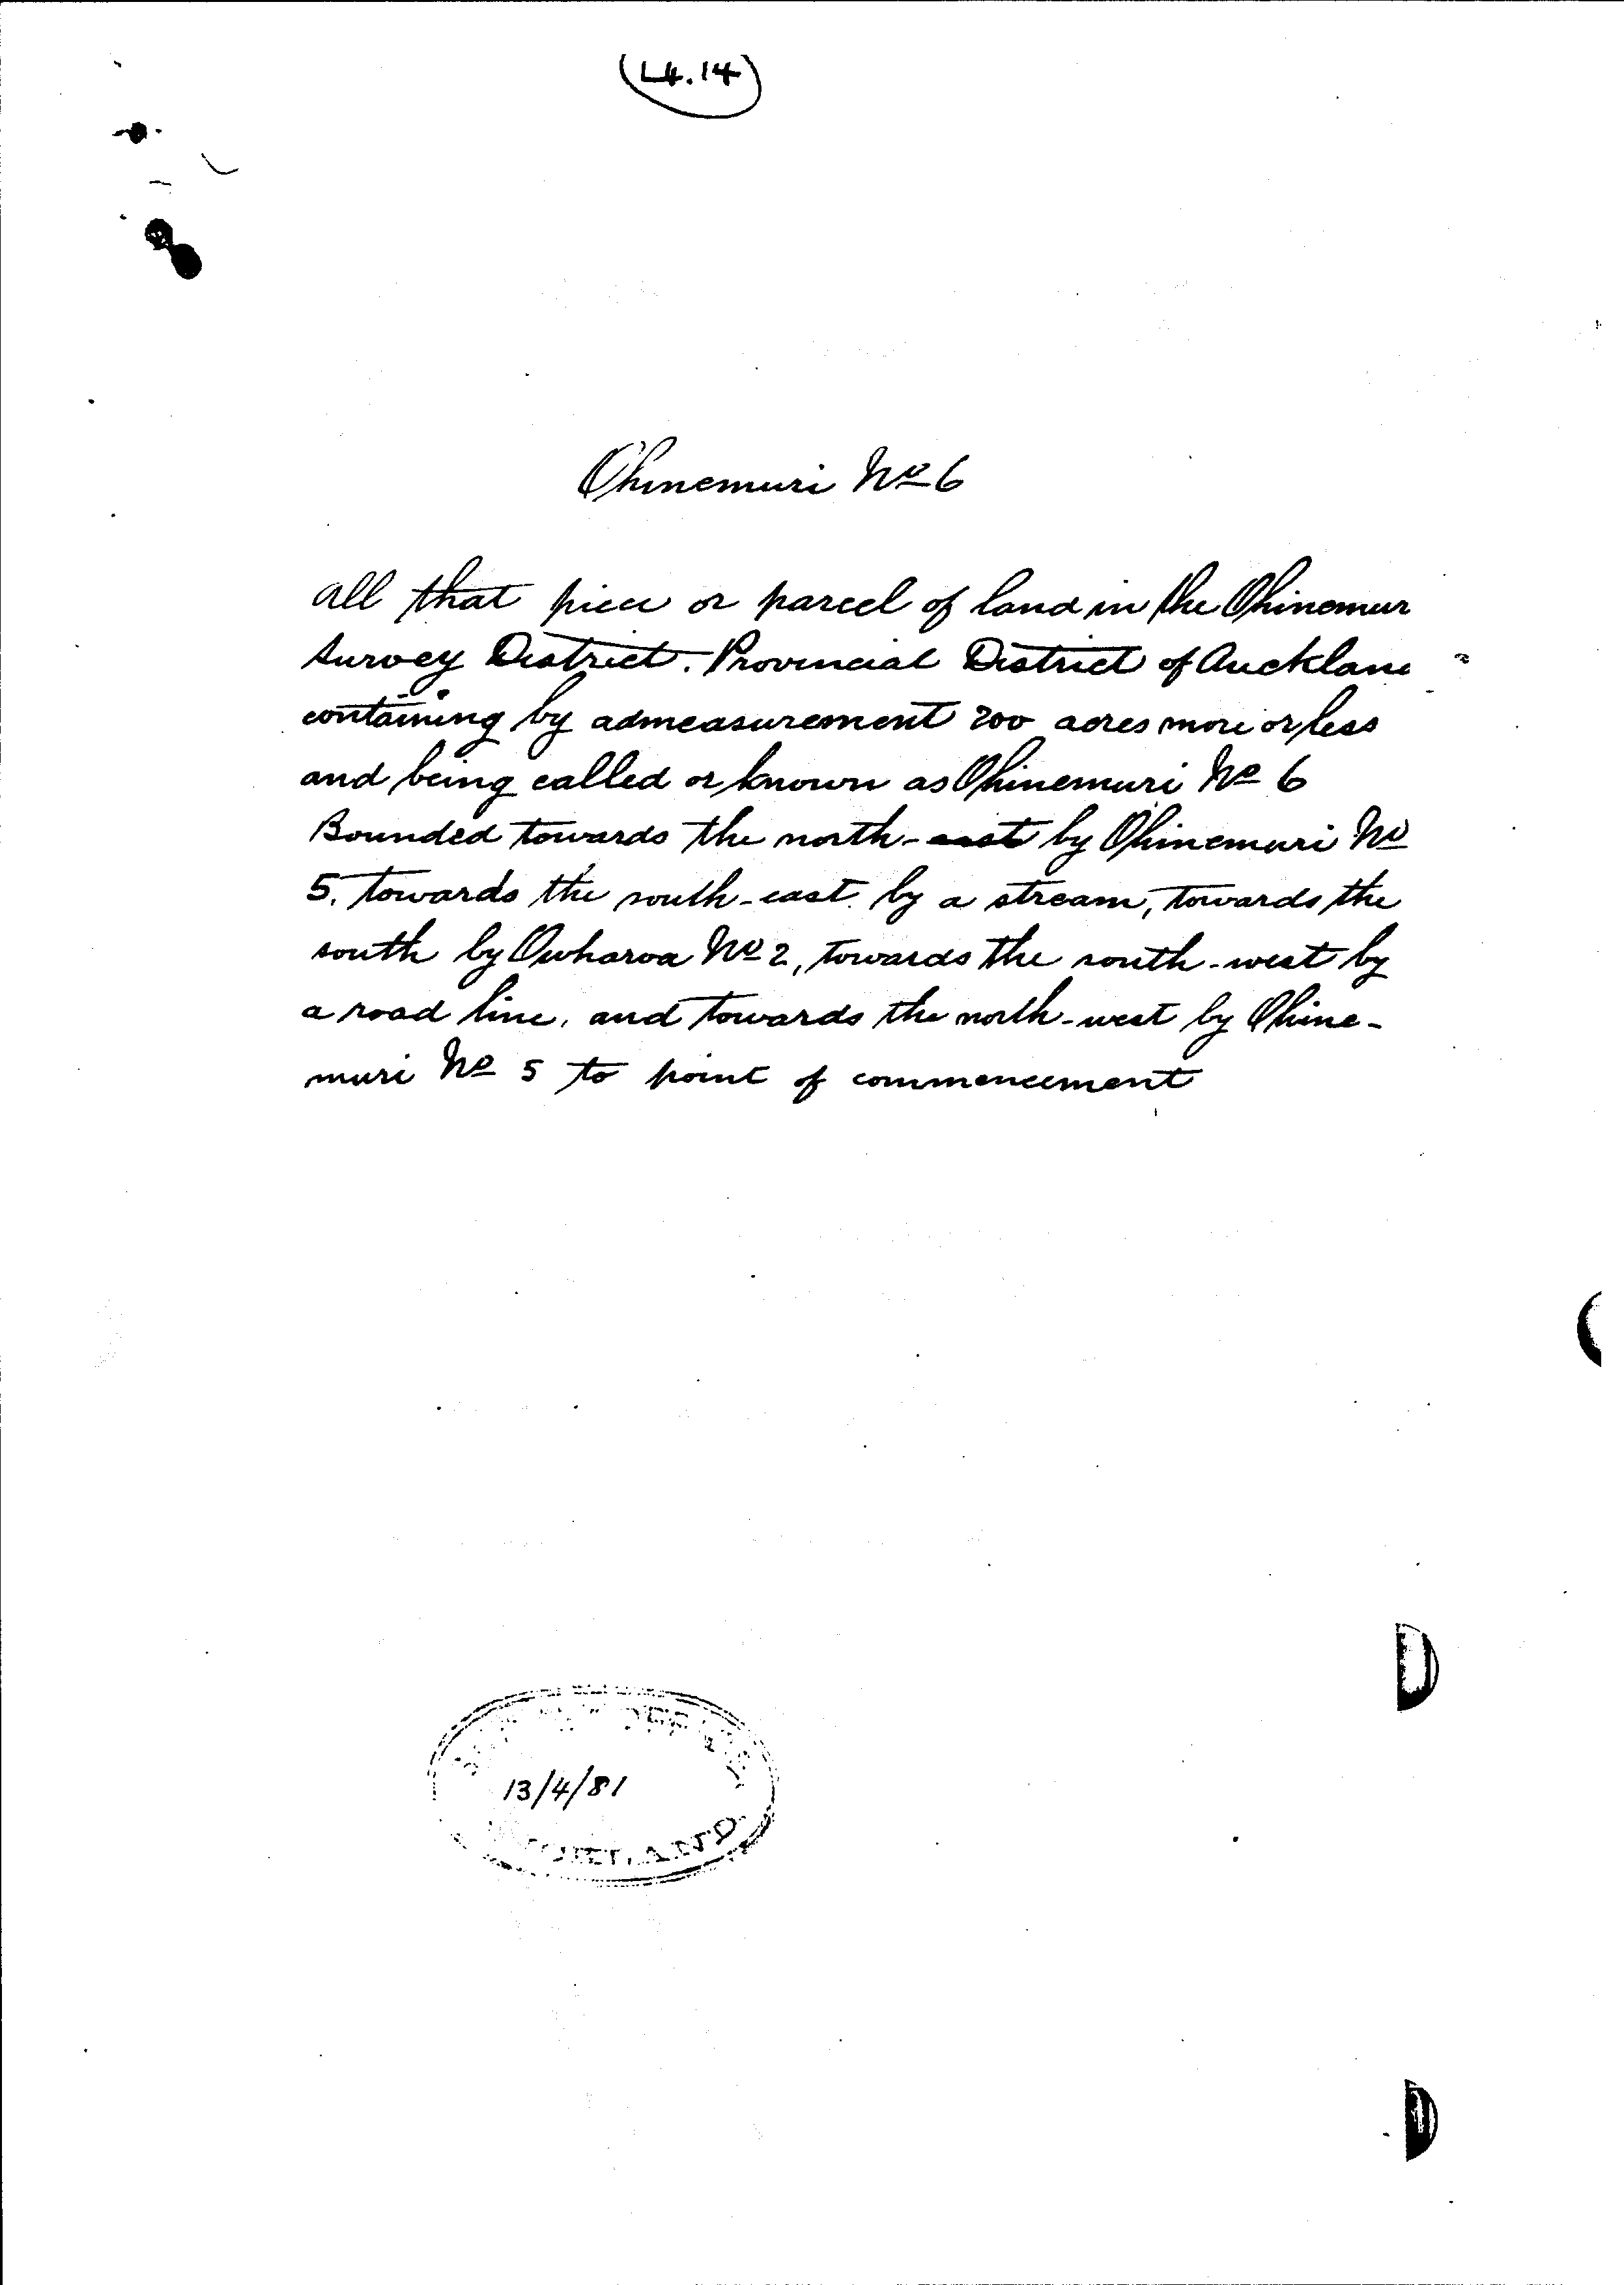 (L4.14)
Ohinemuri No 6
All that piece or parcel of land in the Ohinemur
Survey District. Provincial District of Aucklan
containing by admeasurement 200 acres more or less
and being called or known as Ohinemuri No 6
Bounded towards the north-east by Ohinemuri No
5, towards the south-east by a stream, towards the
south by Owharoa No 2, towards the south-west by
a road line, and towards the north-west by Ohine-
muri No 5 to point of commencement
13/4/81